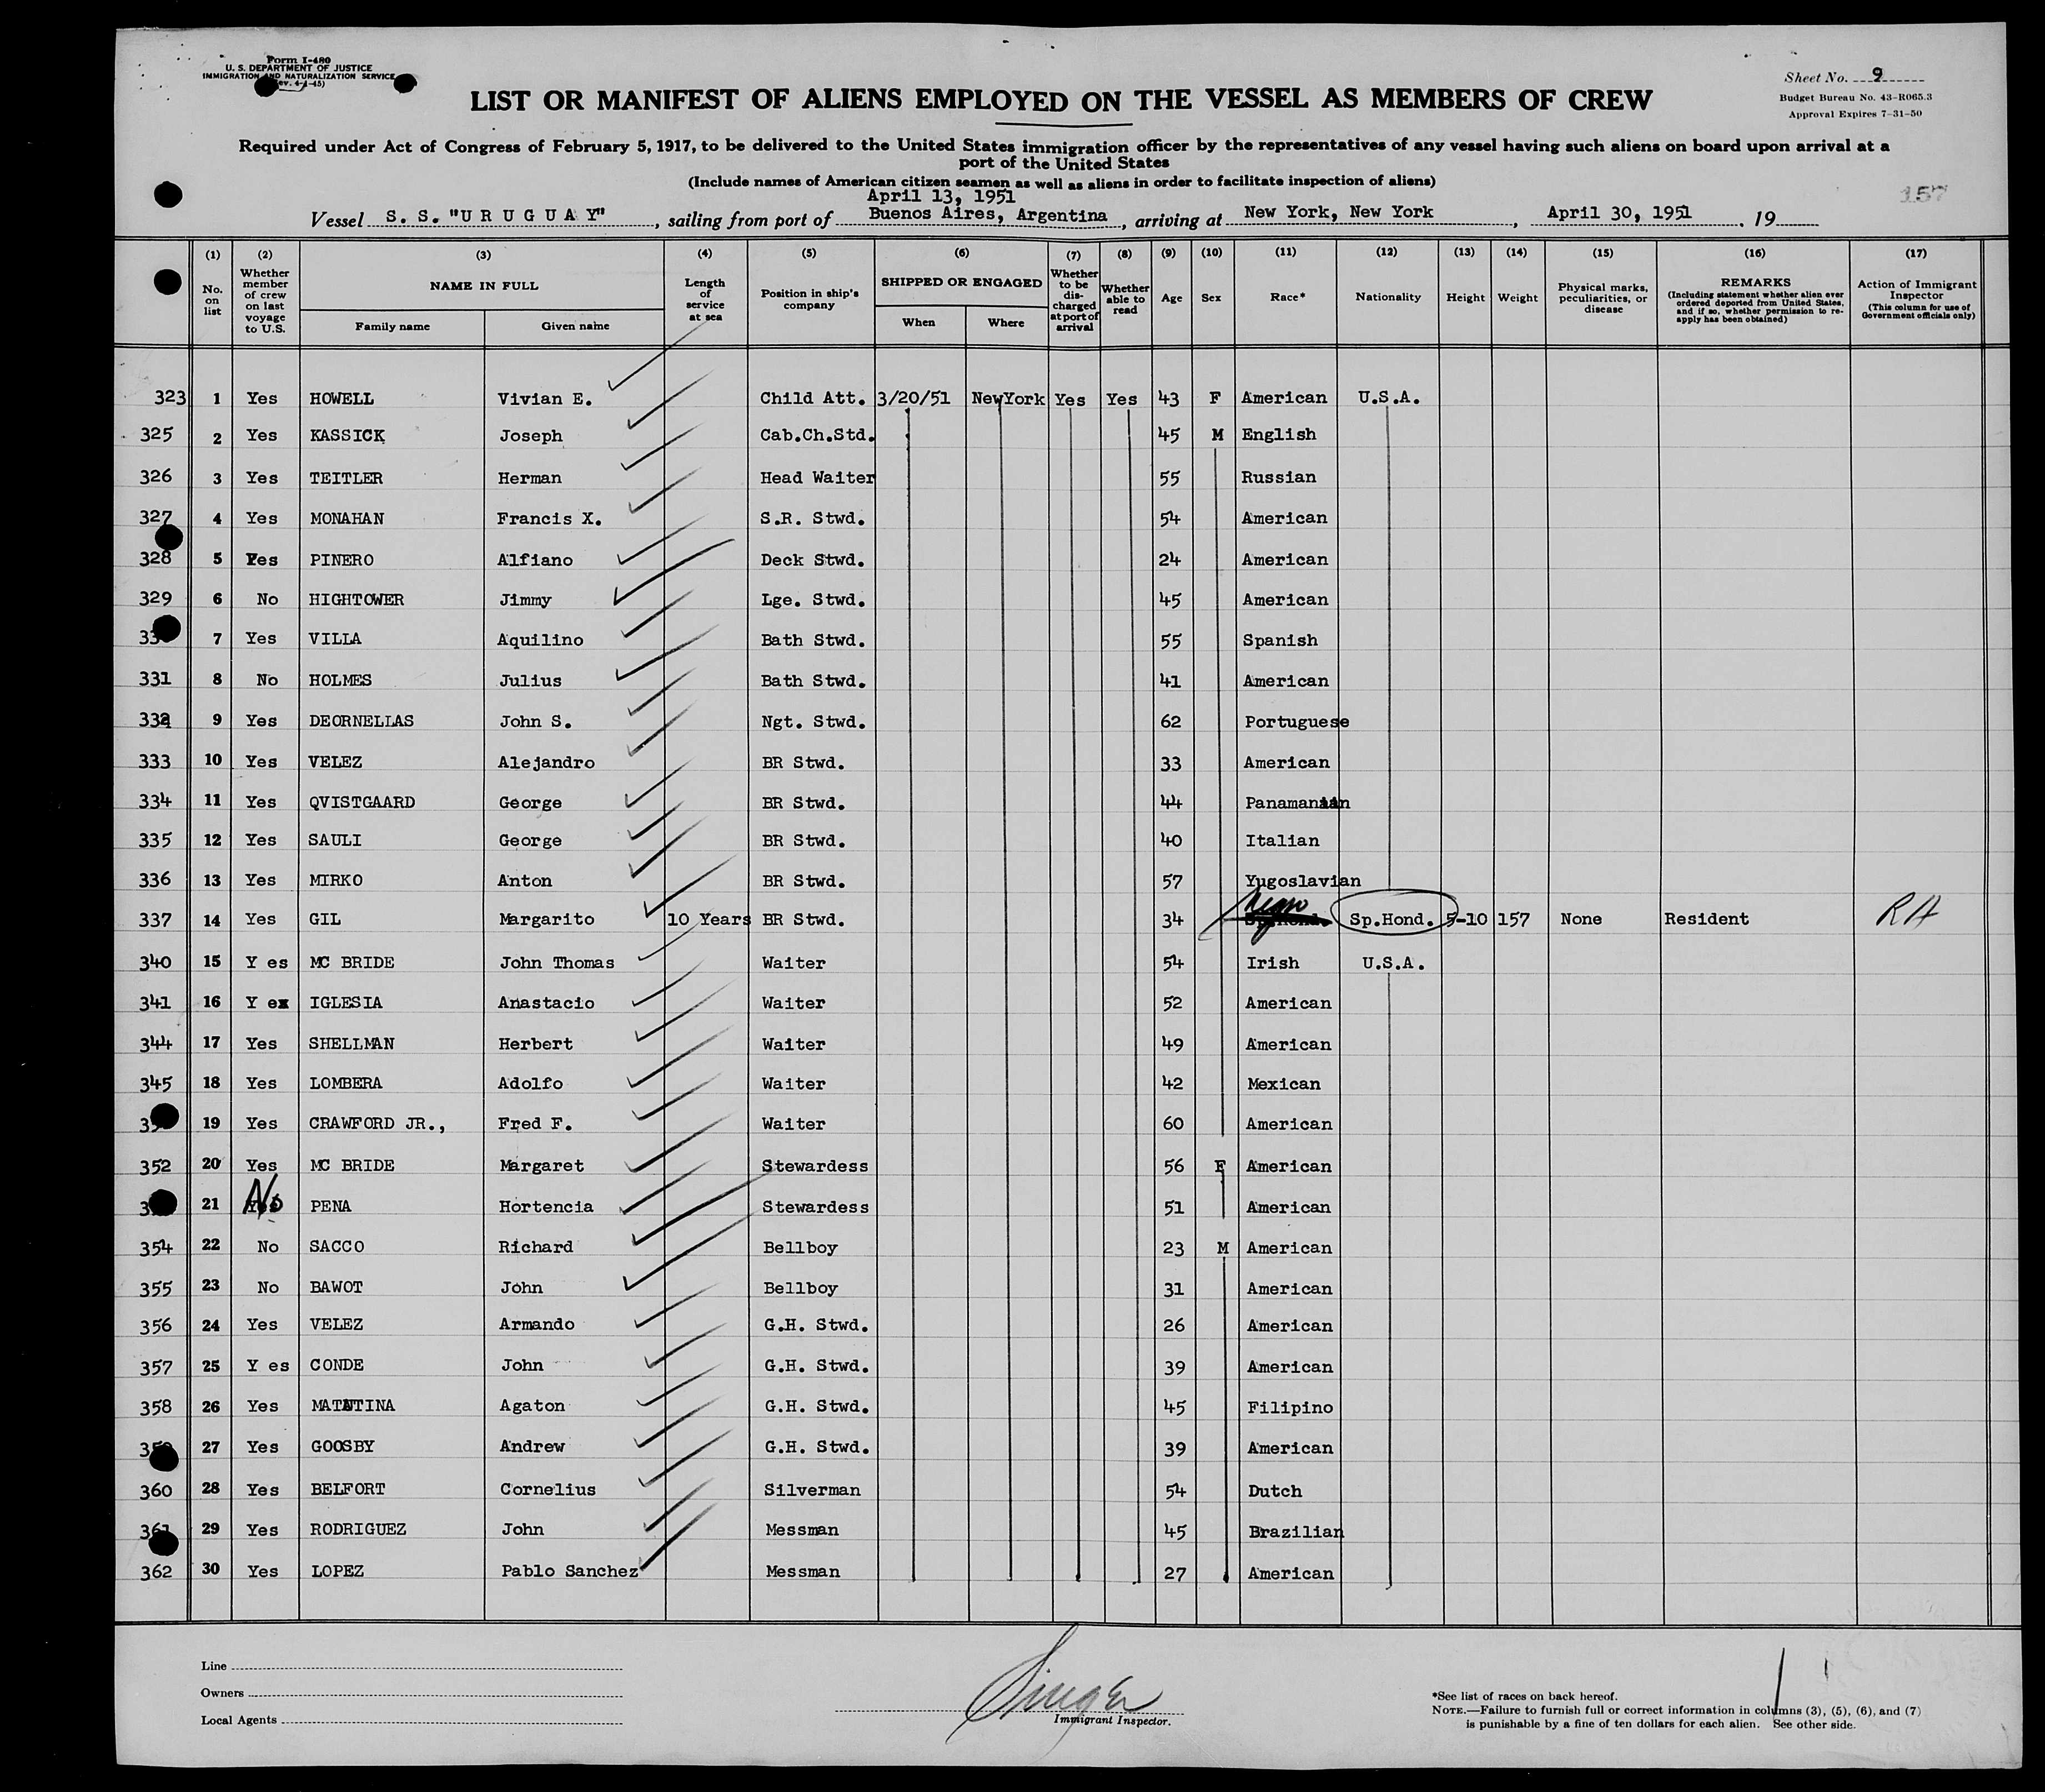 Form I-480
U. S. DEPARTMENT OF JUSTICE
IMMIGRATION AND NATURALIZATION SERVICE
(Rev. 4-4-45)
Sheet No. 9
Budget Bureau No. 43-R065.3
Approval Expires 7-31-50
LIST OR MANIFEST OF ALIENS EMPLOYED ON THE VESSEL AS MEMBERS OF CREW
Required under Act of Congress of February 5, 1917, to be delivered to the United States immigration officer by the representatives of any vessel having such aliens on board upon arrival at a
port of the United States
(Include names of American citizen seamen as well as aliens in order to facilitate inspection of aliens)
157
April 13, 1951
Vessel S. S. "U R U G U A Y", sailing from port of Buenos Aires, Argentina, arriving at New York, New York, April 30, 1951, 19
(1) (2) (3) (4) (5) (6) (7) (8) (9) (10) (11) (12) (13) (14) (15) (16) (17)
No. on list
Whether member of crew on last voyage to U.S.
NAME IN FULL
Family name
Given name
Length of service at sea
Position in ship's company
SHIPPED OR ENGAGED
When
Where
Whether to be discharged at port of arrival
Whether able to read
Age
Sex
Race*
Nationality
Height
Weight
Physical marks, peculiarities, or disease
REMARKS
(Including statement whether alien ever ordered deported from United States, and if so, whether permission to reapply has been obtained)
Action of Immigrant Inspector
(This column for use of Government officials only)
323 1 Yes HOWELL Vivian E. Child Att. 3/20/51 NewYork Yes Yes 43 F American U.S.A.
325 2 Yes KASSICK Joseph Cab.Ch.Std. 45 M English
326 3 Yes TEITLER Herman Head Waiter 55 Russian
327 4 Yes MONAHAN Francis X. S.R. Stwd. 54 American
328 5 Yes PINERO Alfiano Deck Stwd. 24 American
329 6 No HIGHTOWER Jimmy Lge. Stwd. 45 American
7 Yes VILLA Aquilino Bath Stwd. 55 Spanish
331 8 No HOLMES Julius Bath Stwd. 41 American
332 9 Yes DEORNELLAS John S. Ngt. Stwd. 62 Portuguese
333 10 Yes VELEZ Alejandro BR Stwd. 33 American
334 11 Yes QVISTGAARD George BR Stwd. 44 Panamanian
335 12 Yes SAULI George BR Stwd. 40 Italian
336 13 Yes MIRKO Anton BR Stwd. 57 Yugoslavian
337 14 Yes GIL Margarito 10 Years BR Stwd. 34 Negro Sp.Hond. 5-10 157 None Resident RH
340 15 Y es MC BRIDE John Thomas Waiter 54 Irish U.S.A.
341 16 Y ex IGLESIA Anastacio Waiter 52 American
344 17 Yes SHELLMAN Herbert Waiter 49 American
345 18 Yes LOMBERA Adolfo Waiter 42 Mexican
19 Yes CRAWFORD JR., Fred F. Waiter 60 American
352 20 Yes MC BRIDE Margaret Stewardess 56 F American
21 No PENA Hortencia Stewardess 51 American
354 22 No SACCO Richard Bellboy 23 M American
355 23 No BAWOT John Bellboy 31 American
356 24 Yes VELEZ Armando G.H. Stwd. 26 American
357 25 Y es CONDE John G.H. Stwd. 39 American
358 26 Yes MATNTINA Agaton G.H. Stwd. 45 Filipino
359 27 Yes GOOSBY Andrew G.H. Stwd. 39 American
360 28 Yes BELFORT Cornelius Silverman 54 Dutch
361 29 Yes RODRIGUEZ John Messman 45 Brazilian
362 30 Yes LOPEZ Pablo Sanchez Messman 27 American
Line
Owners
Local Agents
Singer
Immigrant Inspector.
*See list of races on back hereof.
NOTE.—Failure to furnish full or correct information in columns (3), (5), (6), and (7)
is punishable by a fine of ten dollars for each alien. See other side.